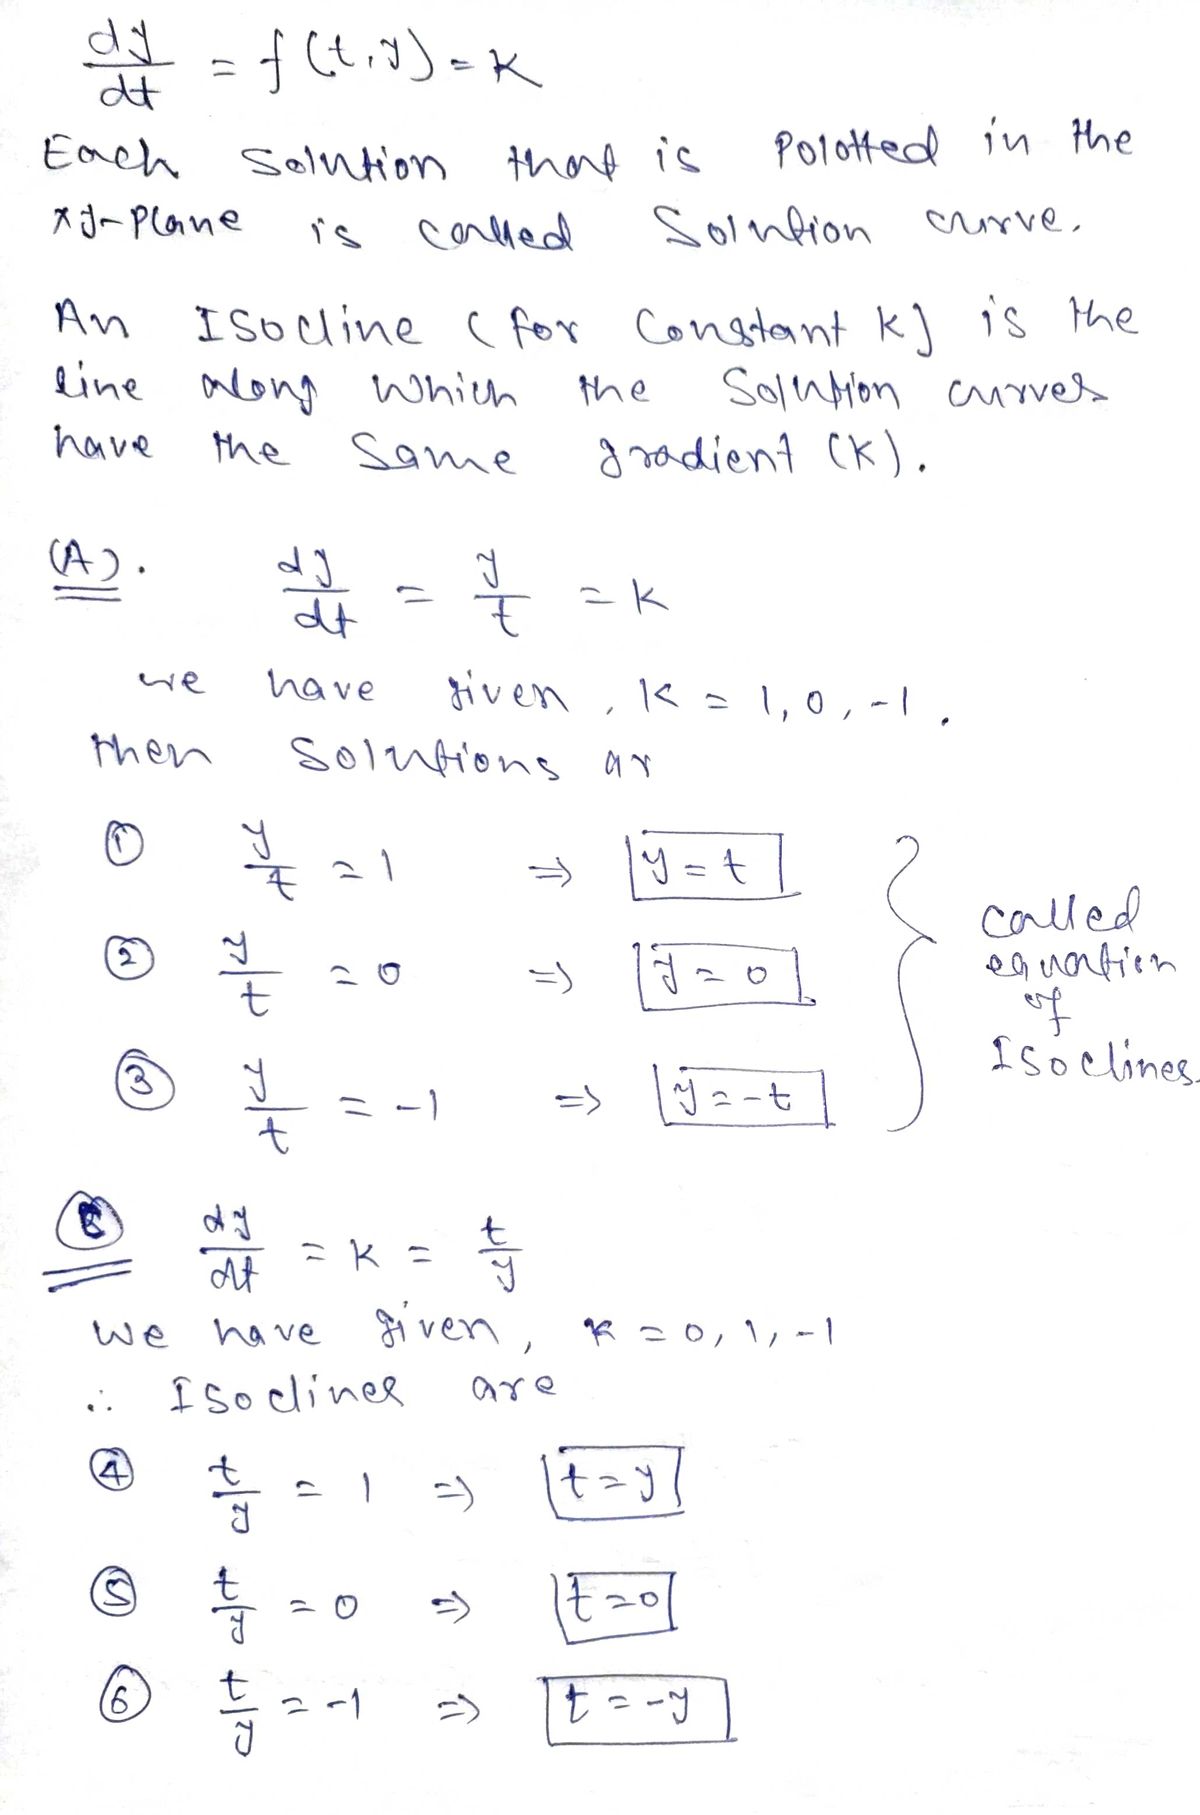 dy/dt = f(t,y) = K
Each Solution that is Polotted in the
xy-Plane is called Solution curve.
An Isocline (for Constant K) is the
line along which the Solution curves
have the Same gradient (K).
(A). dy/dt = y/t = K
we have given, K = 1, 0, -1.
then Solutions ar
① y/t = 1 ⇒ y = t
② y/t = 0 ⇒ y = 0
③ y/t = -1 ⇒ y = -t
called
equation
of
Isoclines.
dy/dt = K = t/y
we have given, K = 0, 1, -1
∴ Isoclines are
④ t/y = 1 ⇒ t = y
⑤ t/y = 0 ⇒ t = 0
⑥ t/y = -1 ⇒ t = -y